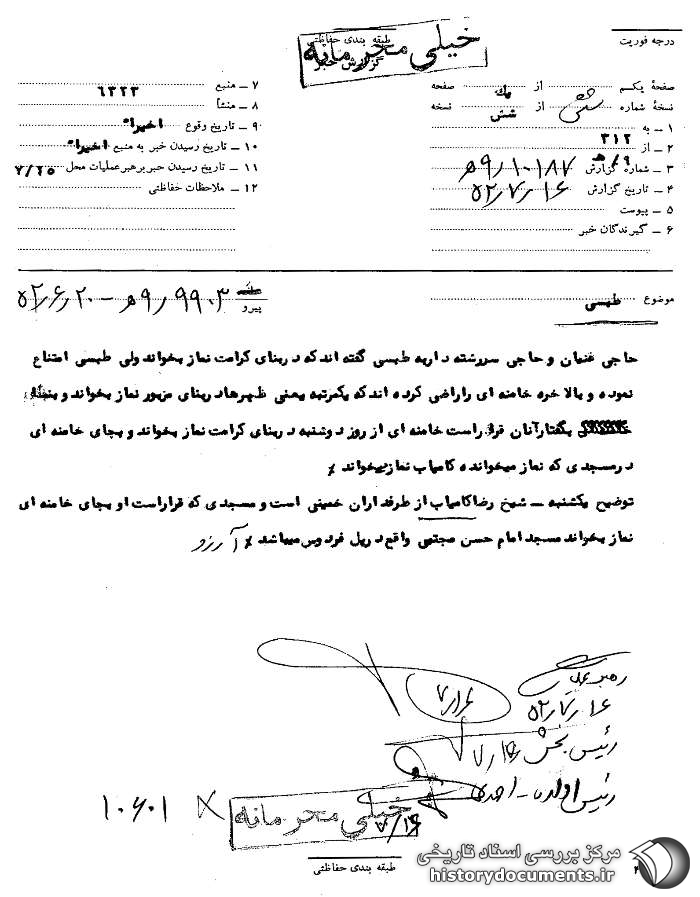 درجه فوریت
طبقه بندی حفاظتی
خیلی محرمانه
گزارش خبر
صفحهٔ یکم از یک صفحه
نسخهٔ شماره شش از شش نسخه
۱ ــ به
۲ ــ از ۳۱۲
۳ ــ شمارهٔ گزارش ۹/۱۰۱۸۷ﻫ
۴ ــ تاریخ گزارش ۵۲/۷/۱۶
۵ ــ پیوست
۶ ــ گیرندگان خبر
۷ ــ منبع ۶۳۲۳
۸ ــ منشأ
۹ ــ تاریخ وقوع اخیرا"
۱۰ ــ تاریخ رسیدن خبر به منبع اخیرا"
۱۱ ــ تاریخ رسیدن خبر برهبر عملیات محل ۷/۲۵
۱۲ ــ ملاحظات حفاظتی
موضوع طبسی
پیرو ۹/۹۹۰۳ﻫ - ۵۲/۶/۲۰
حاجی غنیان و حاجی سررشته دار به طبسی گفته اند که در بنای کرامت نماز بخواند ولی طبسی امتناع
نموده و بالاخره خامنه ای را راضی کرده اند که یکمرتبه یعنی ظهرها در بنای مزبور نماز بخواند و بنا
بگفتار آنان قرار است خامنه ای از روز دوشنبه در بنای کرامت نماز بخواند و بجای خامنه ای
در مسجدی که نماز میخوانده کامیاب نماز میخواند ٪
توضیح یکشنبه ــ شیخ رضا کامیاب از طرفداران خمینی است و مسجدی که قرار است او بجای خامنه ای
نماز بخواند مسجد امام حسن مجتبی واقع در پل فردوس میباشد ٪ آرزو
رهبر عملیات
۵۲/۷/۱۶
رئیس بخش
۷/۱۶
رئیس اداره - احمدی
۷/۱۶
خیلی محرمانه
۱۰۶۰۱
طبقه بندی حفاظتی
مرکز بررسی اسناد تاریخی
historydocuments.ir